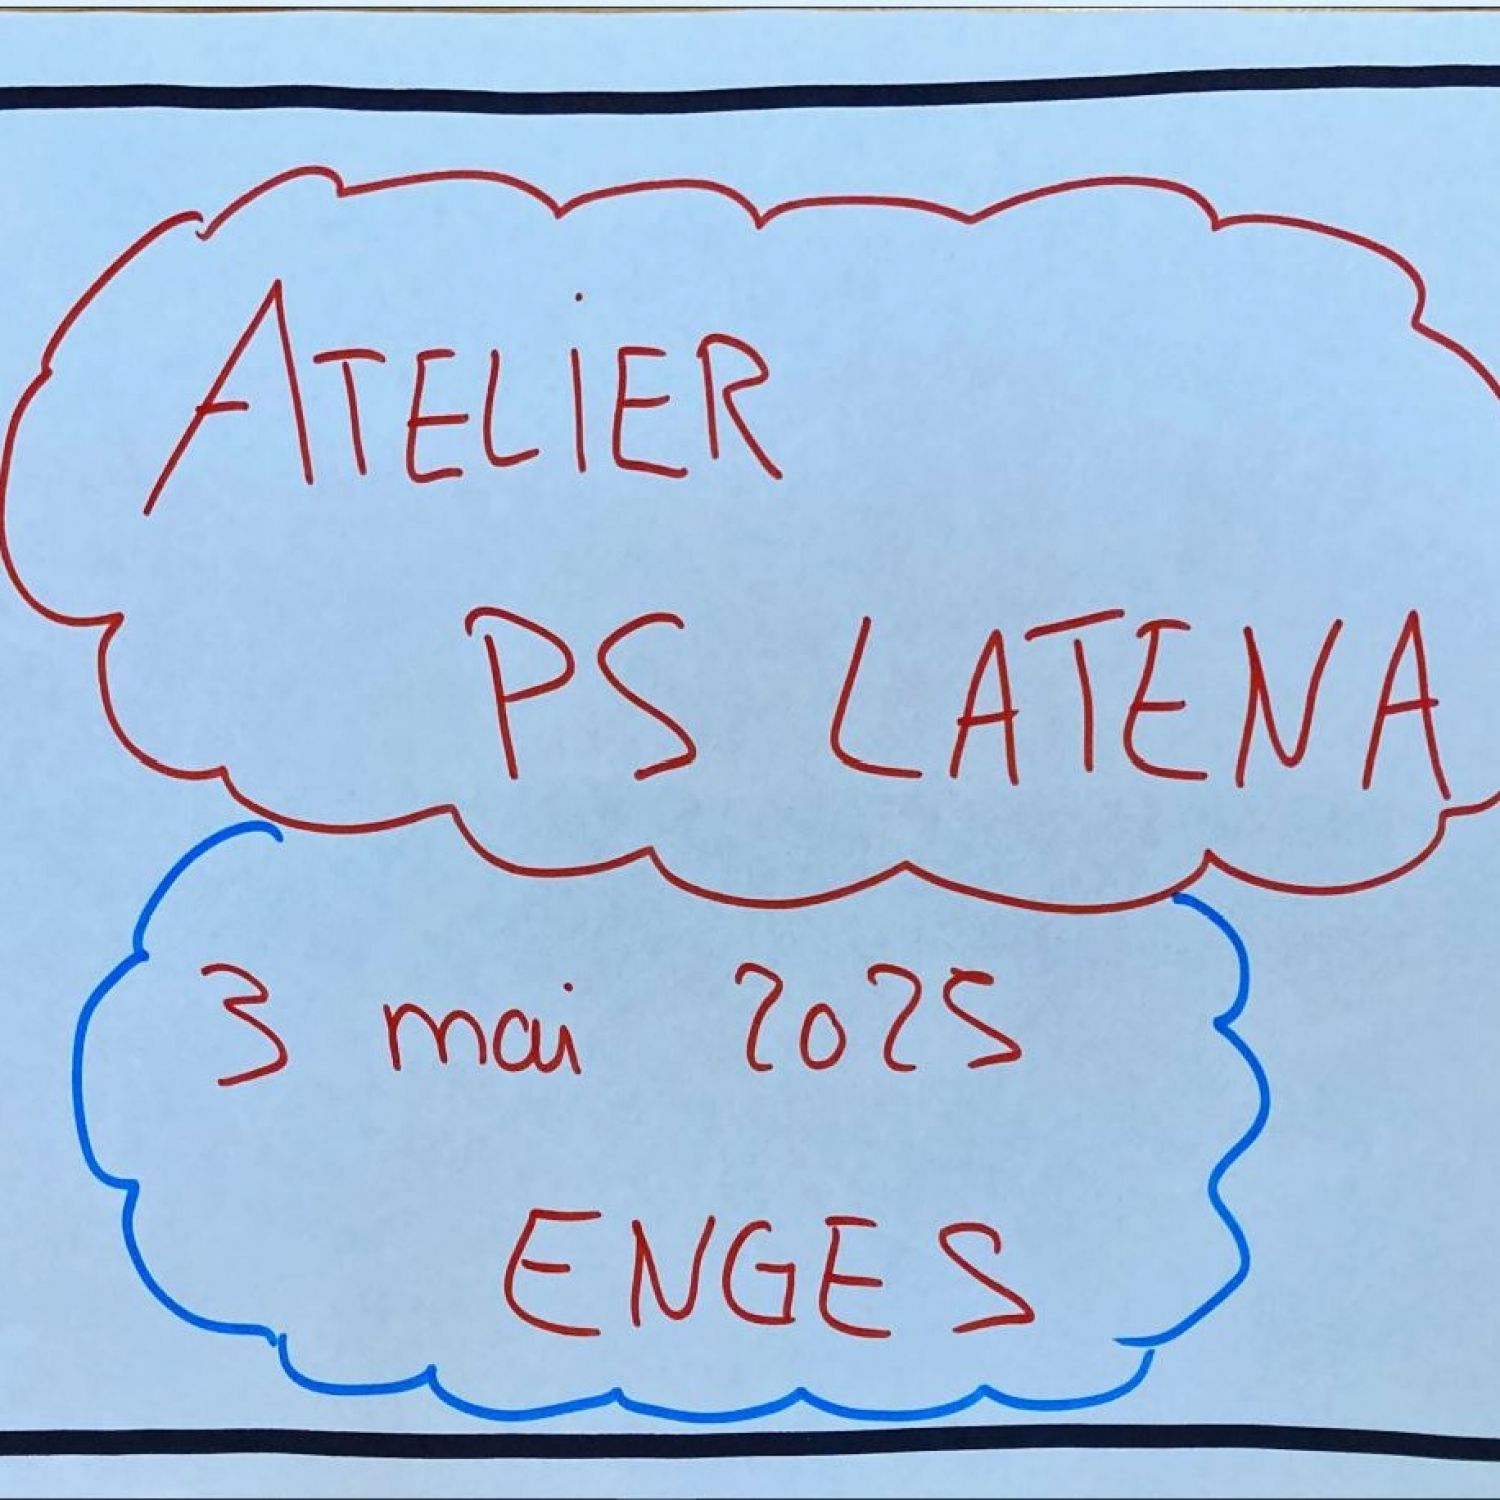 ATELiER
PS LATENA
3 mai 2025
ENGES